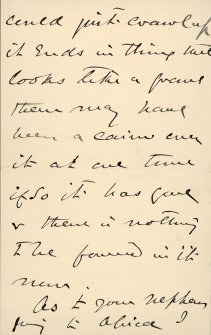 could just crawl up
it Ends in thing that
looks like a grave
there may have
been a cairn over
it at one time
if so it has gone
& there is nothing
to be found in it
now.
As to your nephew
going to Africa I